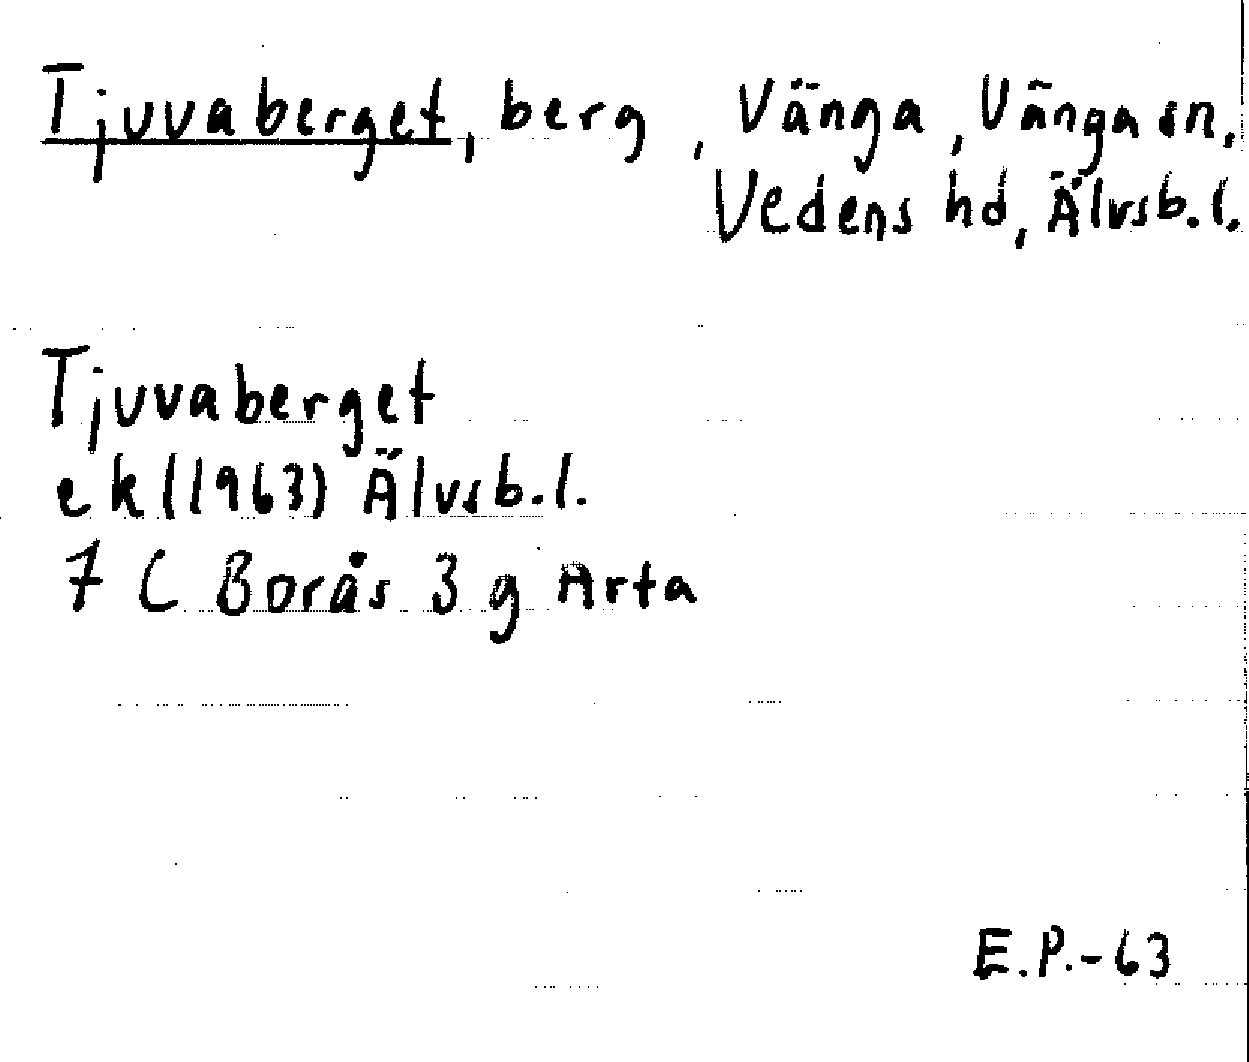 Tjuvaberget, berg, Vänga, Vänga sn,
Vedens hd, Älvsb.l.
Tjuvaberget
ek (1963) Älvsb.l.
7 C Borås 3 g Arta
E.P.-63